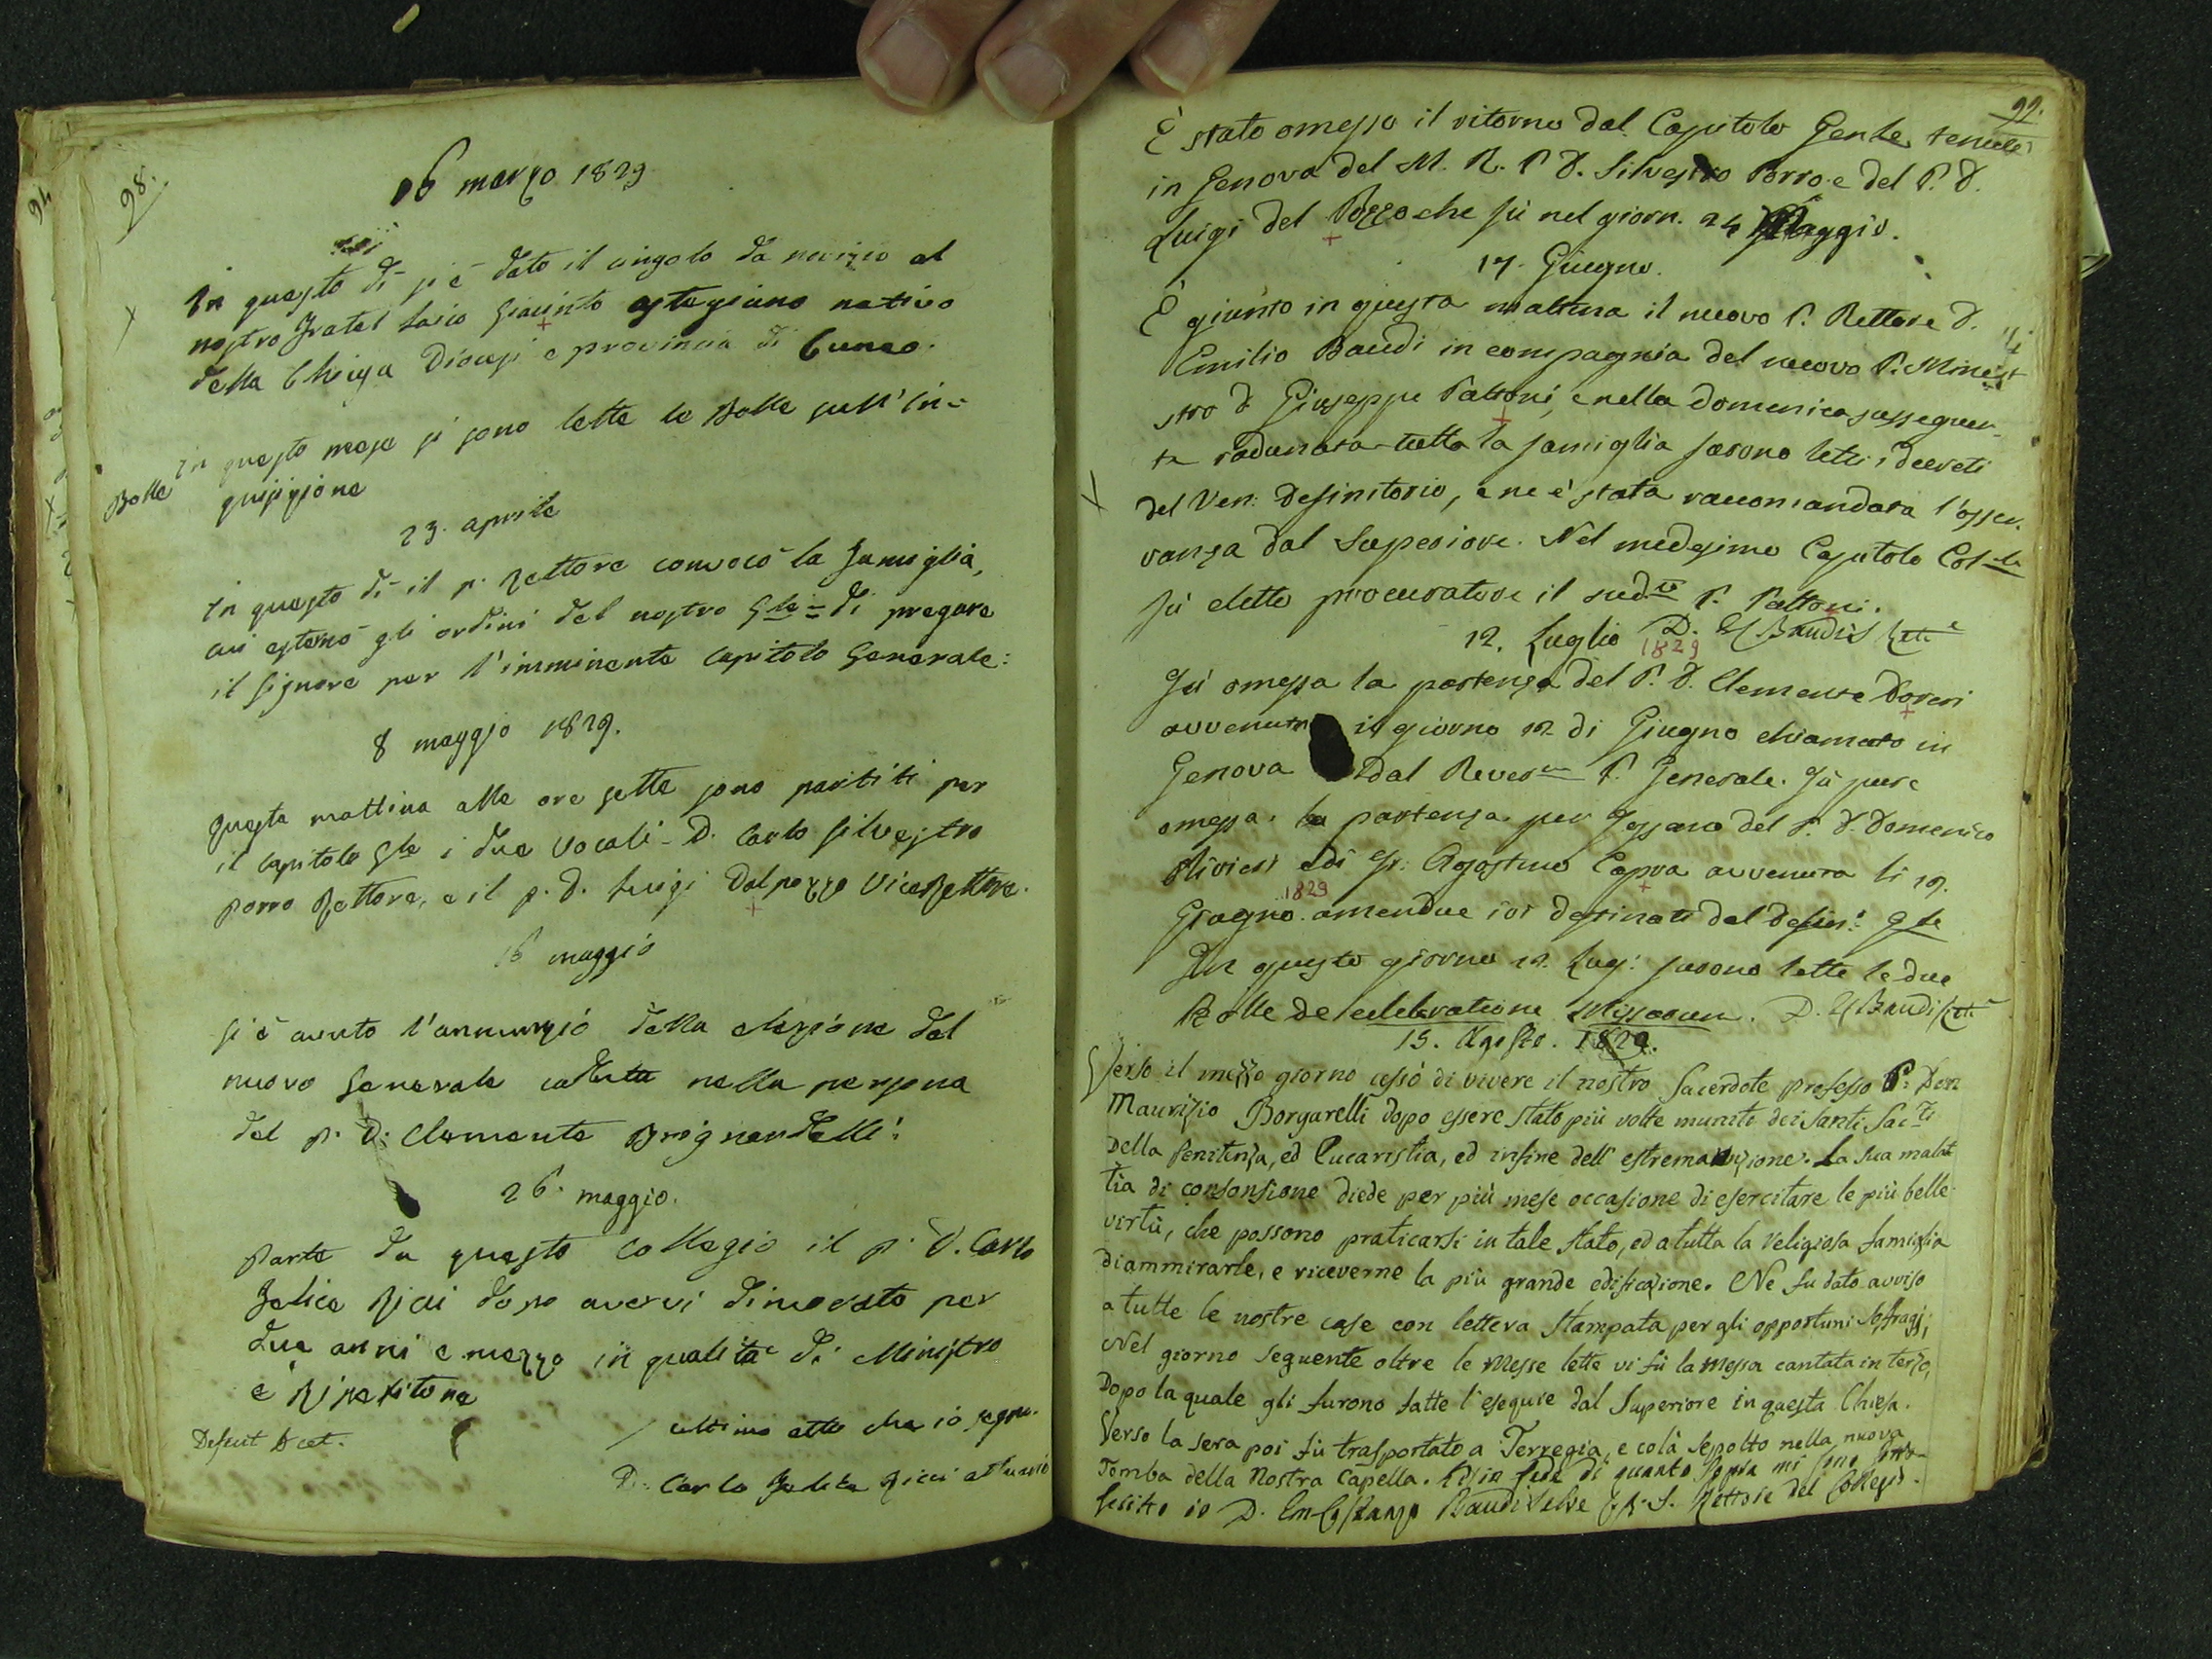 94
98.
16 marzo 1829
In questo dì si è dato il cingolo da novizio al
nostro Fratel laico Giacinto astegiano nativo
della Chiusa Diocesi e provincia di Cuneo.
Bolle In questo mese si sono lette le Bolle sull'In=
quisizione
23. aprile
In questo dì il p. Rettore convocò la famiglia,
cui esternò gli ordini del nostro Gle = di pregare
il Signore per l'imminente Capitolo Generale:
8 maggio 1829.
Questa mattina alle ore sette sono partiti per
il capitolo Gle i due Vocali - D. Carlo Silvestro
Porro Rettore, e il p. D. Luigi Dalpozzo ViceRettore.
16 maggio
Si è avuto l'annunzio della elezione del
nuovo Generale caduta nella persona
del p. D. Clemente Brignardelli:
26. maggio.
Parte da questo collegio il p. D. Carlo
Felice Ricci dopo avervi dimorato per
due anni e mezzo in qualità di Ministro
e Ripetitore
Desunt acet.
/ ultimo atto che io segno.
D. Carlo Felice Ricci attuario
99.
È stato omesso il ritorno dal Capitolo Genle tenutosi
in Genova del M. R. P. D. Silvestro Porro e del P. D.
Luigi del Pozzo che fù nel giorn. 24 Maggio.
17. Giugno.
È giunto in questa mattina il nuovo P. Rettore D.
Emilio Baudi in compagnia del nuovo P. Mini
stro D. Giuseppe Paltoni, e nella domenica sasseguen-
te radunata tutta la famiglia furono letti i decreti
del Ven: Definitorio, e ne è stata raccomandata l'osser-
vanza dal Superiore. Nel medesimo Capitolo Colle
fù eletto procuratore il sudto P. Paltoni.
12. Luglio 1829 D. E Baudi Rett.e
Fù omessa la partenza del P. D. Clemente Doreri
avvenuta il giorno 12 di Giugno chiamato in
Genova dal Reverm P. Generale. Fù pure
omessa la partenza per Fossano del P. D. Domenico
Olivieri e di Fr: Agostino Capra avvenuta li 19.
Giugno 1829 amendue ivi destinati dal Defin: Gle
In questo giorno 12. Lug: furono lette le due
Bolle De celebratione Missarum. D. E Baudi Rett.e
15. Agosto. 1829.
Verso il mezzo giorno cessò di vivere il nostro Sacerdote professo P. Don
Maurizio Borgarelli dopo essere stato più volte munito dei Santi Sacti
Della Penitenza, ed Eucaristia, ed infine dell' estrema unzione. La sua malat
tia di consonsione diede per più mese occasione di esercitare le più belle
virtù, che possono praticarsi in tale stato, ed a tutta la religiosa famiglia
di ammirarle, e riceverne la più grande edificazione. Ne fu dato avviso
a tutte le nostre case con lettera stampata per gli opportuni Soffragj;
Nel giorno seguente oltre le Messe lette vi fù la Messa cantata in terzo,
Dopo la quale gli furono fatte l'esequie dal Superiore in questa Chiesa.
Verso la sera poi fù trasportato a Terregia, e colà sepolto nella nuova
Tomba della Nostra Capella. Ed in fede di quanto sopra mi sono sotto-
scritto io D. Baudi Selve C.R.S. Rettore del Collegio.